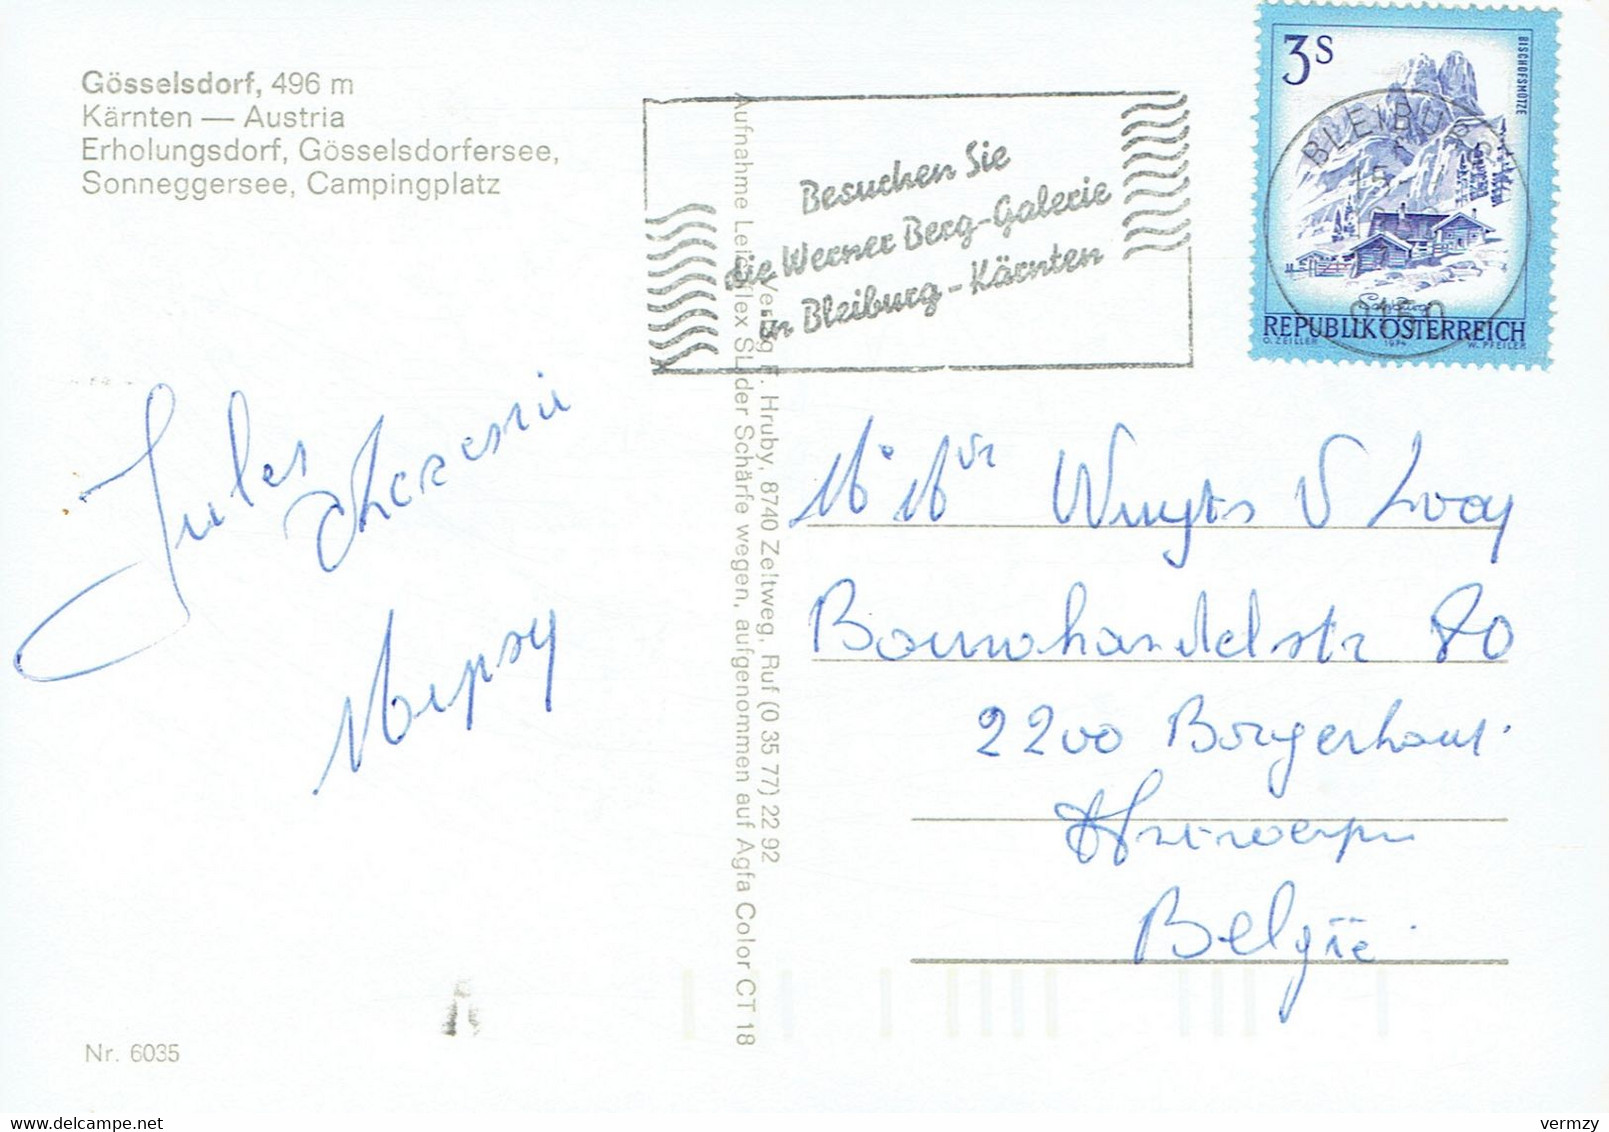 Gösselsdorf, 496 m
Kärnten — Austria
Erholungsdorf, Gösselsdorfersee,
Sonneggersee, Campingplatz
Besuchen Sie
die Werner Berg-Galerie
in Bleiburg-Kärnten
3S
BISCHOFSMÜTZE
BLEIBURG
Salzburg
REPUBLIK ÖSTERREICH
O. ZEILLER 1974 W. PFEILER
Verlag F. Hruby, 8740 Zeltweg, Ruf (0 35 77) 22 92
Aufnahme Leicaflex SL der Schärfe wegen, aufgenommen auf Agfa Color CT 18
Jules
Wuyts V Looy
80
2200 Borgerhout
Antwerpen
België
Nr. 6035
vermzy